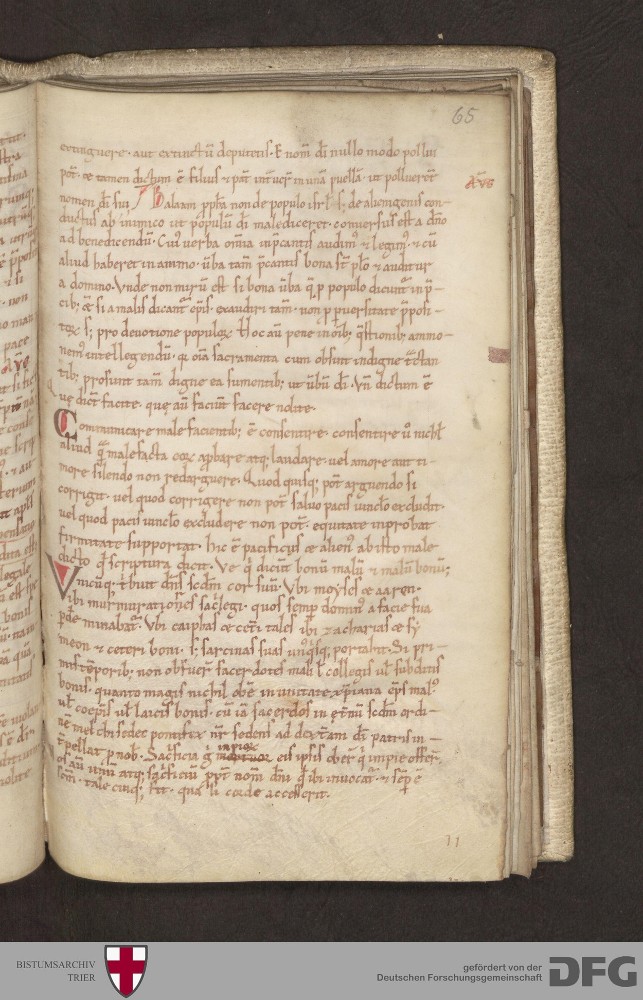 65
extinguere. aut extinctū deputetis. E nom̄ dī nullo modo pollui
pot̄. & tamen dictum ē filius & pat̄ in unā puella. ut polluerēt
AVG
nomen dī sui. Balaam ppħa non de populo isrl̄ s; de alienigenis con-
ductus ab inimico ut populū dī malediceret. conuersus est a dn̄o
ad benedicendū. Cui' uerba omīa inp̄cantis audim' & legim'. & cū
aliud haberet in animo. ūba tam̄ p̄cantis bona st̄ plo & auditur
a domino. Unde non mirū est si bona ūba q̄ p populo dicunt̄ in p̄-
cib; & si a malis dicant̄ ep̄is. exaudiri tam̄. non p puersitate p̄posi-
s; pro devotione Hoc aū pene in oīb; q̄stionib; ammo-
nem' intellegendū. qi oīa sacramenta cum obsint indigne tractan
tib; prosunt tam̄ digne ea sumentib; ut ūbū dī. Un̄ dictum ē
Quę dict̄ facite. quę aū faciunt facere nolite.
Communicare male facientib; ē consentire. consentire ū nichil
aliud q̄ malefacta approbare atq; laudare. uel amore aut ti-
more silendo non redarguere. Quod quisq; pot̄ arguendo si
corrigit. uel quod corrigere non pot̄ saluo pacis uinclo excludit.
uel quod pacis uinclo excludere non pot̄. equitate inprobat
firmitate supportat. hic ē pacificus & alien' ab isto male
dicto q̄ scriptura dicit. Ve q̄ dicūt bonū malū & malū bonū;
Vnicuiq; tbuit dn̄s scdm̄ cor suū. Vbi moyses & aaron.
ibi murmurationes sacl̄egi. quos semp dominus a facie sua
pdere minabat̄. Vbi caiphas & cet̄i tales ibi zacharias & sy
meon & ceteri boni. s; sarcinas suas un'q'sq; portabit. Si pri-
mis temporib; non obfuer̄ sacerdotes mali l̄ collegis ul̄ subditis
bonis. quanto magis nichil obē in unitate xpiana ep̄s mal'.
ul̄ coep̄is ul̄ laicis bonis. cū iā sacerdos in et̄nū scdm̄ ordi-
nē melchisedec pontifex nr̄ sedens ad dextrām dī patris in-
t̄pellat p nob̄. Sacrificia g̊ impiorū eis ipsis
atq; sacrificiū nom̄ dn̄i q̄ ibi inuocat̄. & semp ē
tale cuiq; fit. quali corde accesserit.
11
BISTUMSARCHIV
TRIER
gefördert von der
Deutschen Forschungsgemeinschaft
DFG